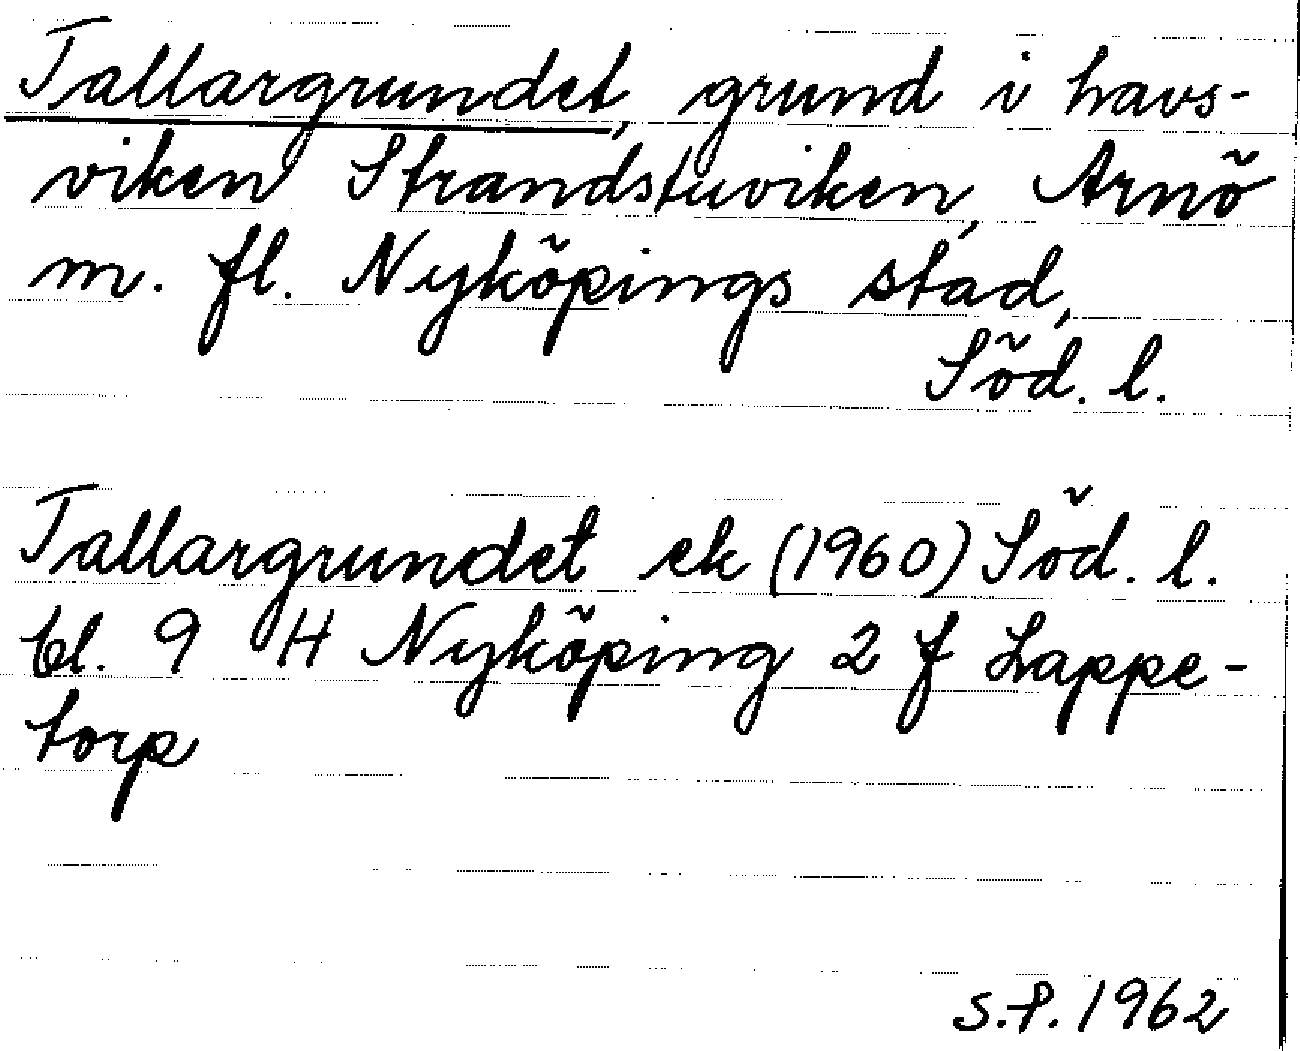 Tallargrundet, grund i havs-
viken Strandstuviken, Arnö
m. fl. Nyköpings stad,
Söd. l.
Tallargrundet ek (1960) Söd. l.
bl. 9 H Nyköping 2 f Lappe-
torp
S.P. 1962